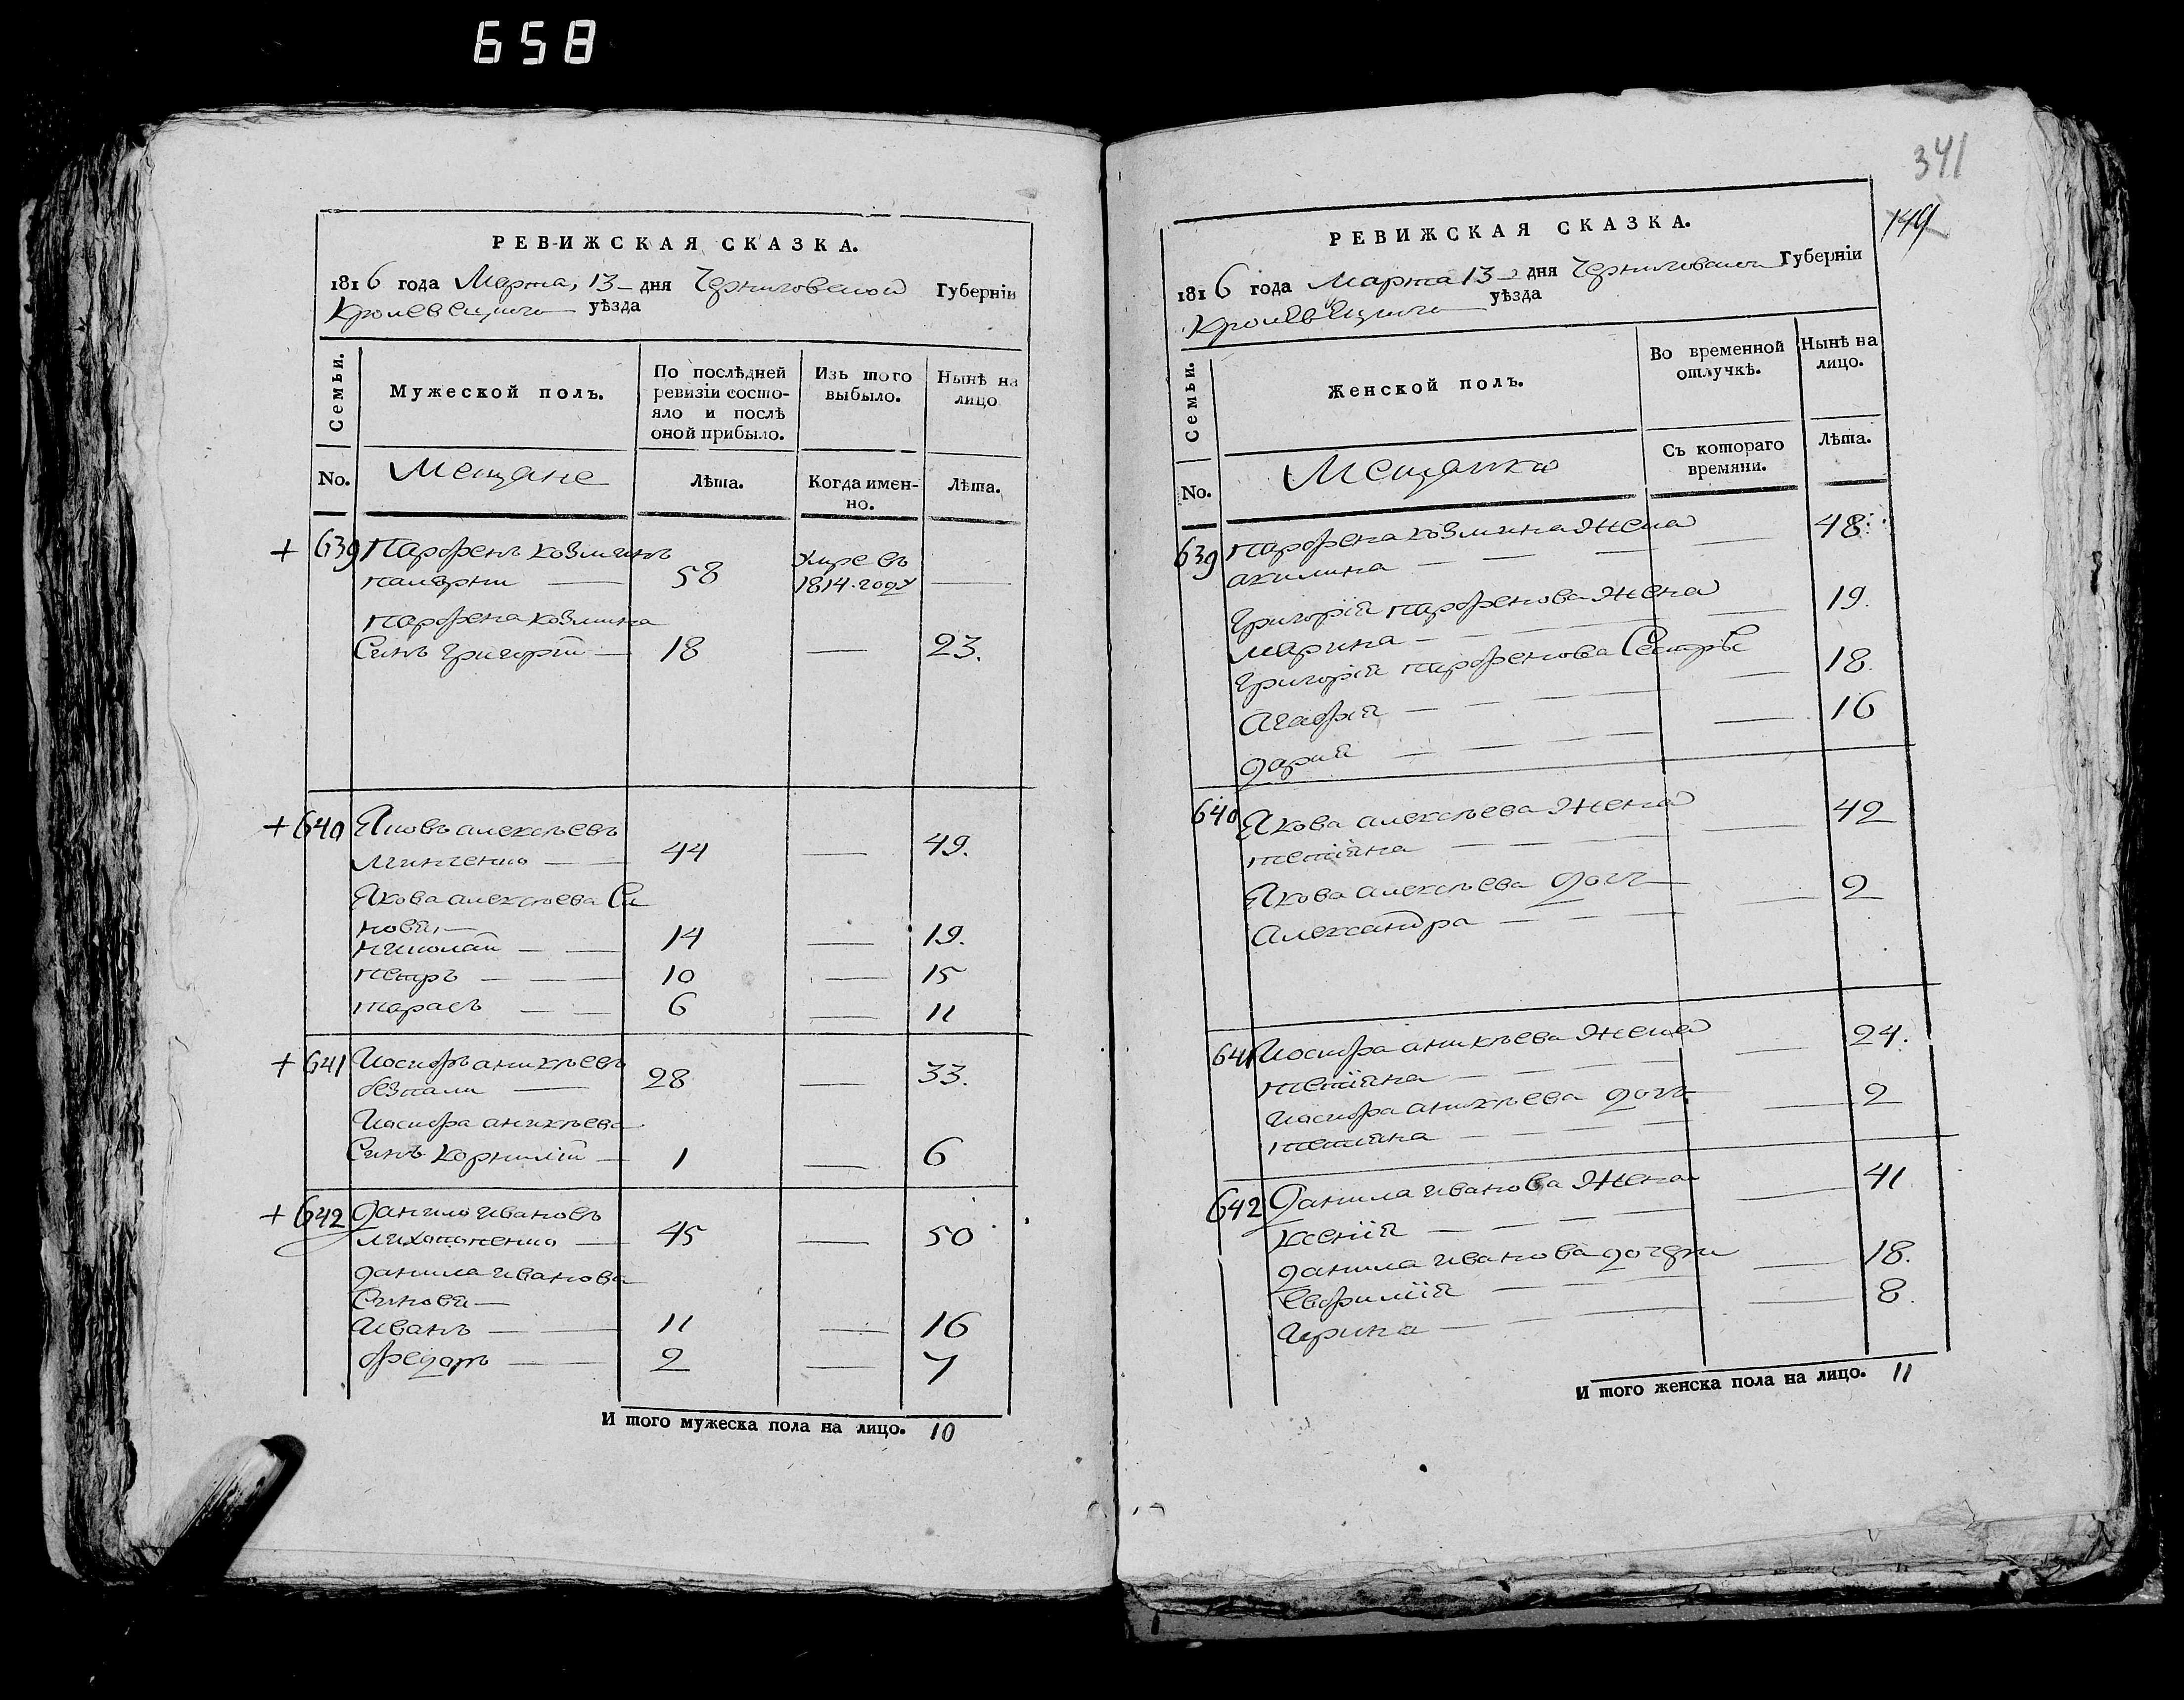 658
РЕВИЖСКАЯ СКАЗКА.
1816 года Марта, 13 дня Черниговской Губерніи
Кролевецкого уѣзда
Семьи.
Мужеской полъ.
По послѣдней ревизіи состо-
яло и послѣ
оной прибыло.
Изъ того выбыло.
Нынѣ на лицо
No.
Мещане
Лѣта.
Когда имен-
но.
Лѣта.
+ 639 Парфенъ козминъ
58 умре въ 1814. году —
парфена козмина
Синъ григорій — 18 — 23.
+ 640 Яковъ алексѣевъ
минченко — 44 — 49.
Якова алексѣева Си
новя, —
николай — 14 — 19.
петръ — 10 — 15
тарасъ — 6 — 11
+ 641 Иосифъ аникѣевъ
безпали — 28 — 33.
Иосифа аникѣева
Синъ корнилій — 1 — 6
+ 642 Данило ивановъ
45 — 50
данила иванова
Синовя —
Иванъ — 11 — 16
федоръ — 2 — 7
И того мужеска пола на лицо. 10
341
149
РЕВИЖСКАЯ СКАЗКА.
1816 года Марта 13 дня Черниговской Губерніи
Кролевецкого уѣзда
Семьи.
Женской полъ.
Во временной
отлучкѣ.
Нынѣ на
лицо.
No.
Мещанки
Съ котораго
времяни.
Лѣта.
639 парфена козмина Жена
акилина — — 48.
Григорія парфенова Жена
марина — — 19.
Григорія парфенова Сестры
Агафія — — 18.
дарія — — 16
640 Якова алексѣева Жена
тетіяна — — 42
Якова алексѣева дочь
Александра — — 2
641 Иосифа аникѣева Жена
тетіяна — — 24.
Иосифа аникѣева дочь
тетіяна — — 2
642 Данила иванова Жена
ксенія — — 41
данила иванова дочери
Евфимія — — 18.
Ирина — — 8.
И того женска пола на лицо. 11